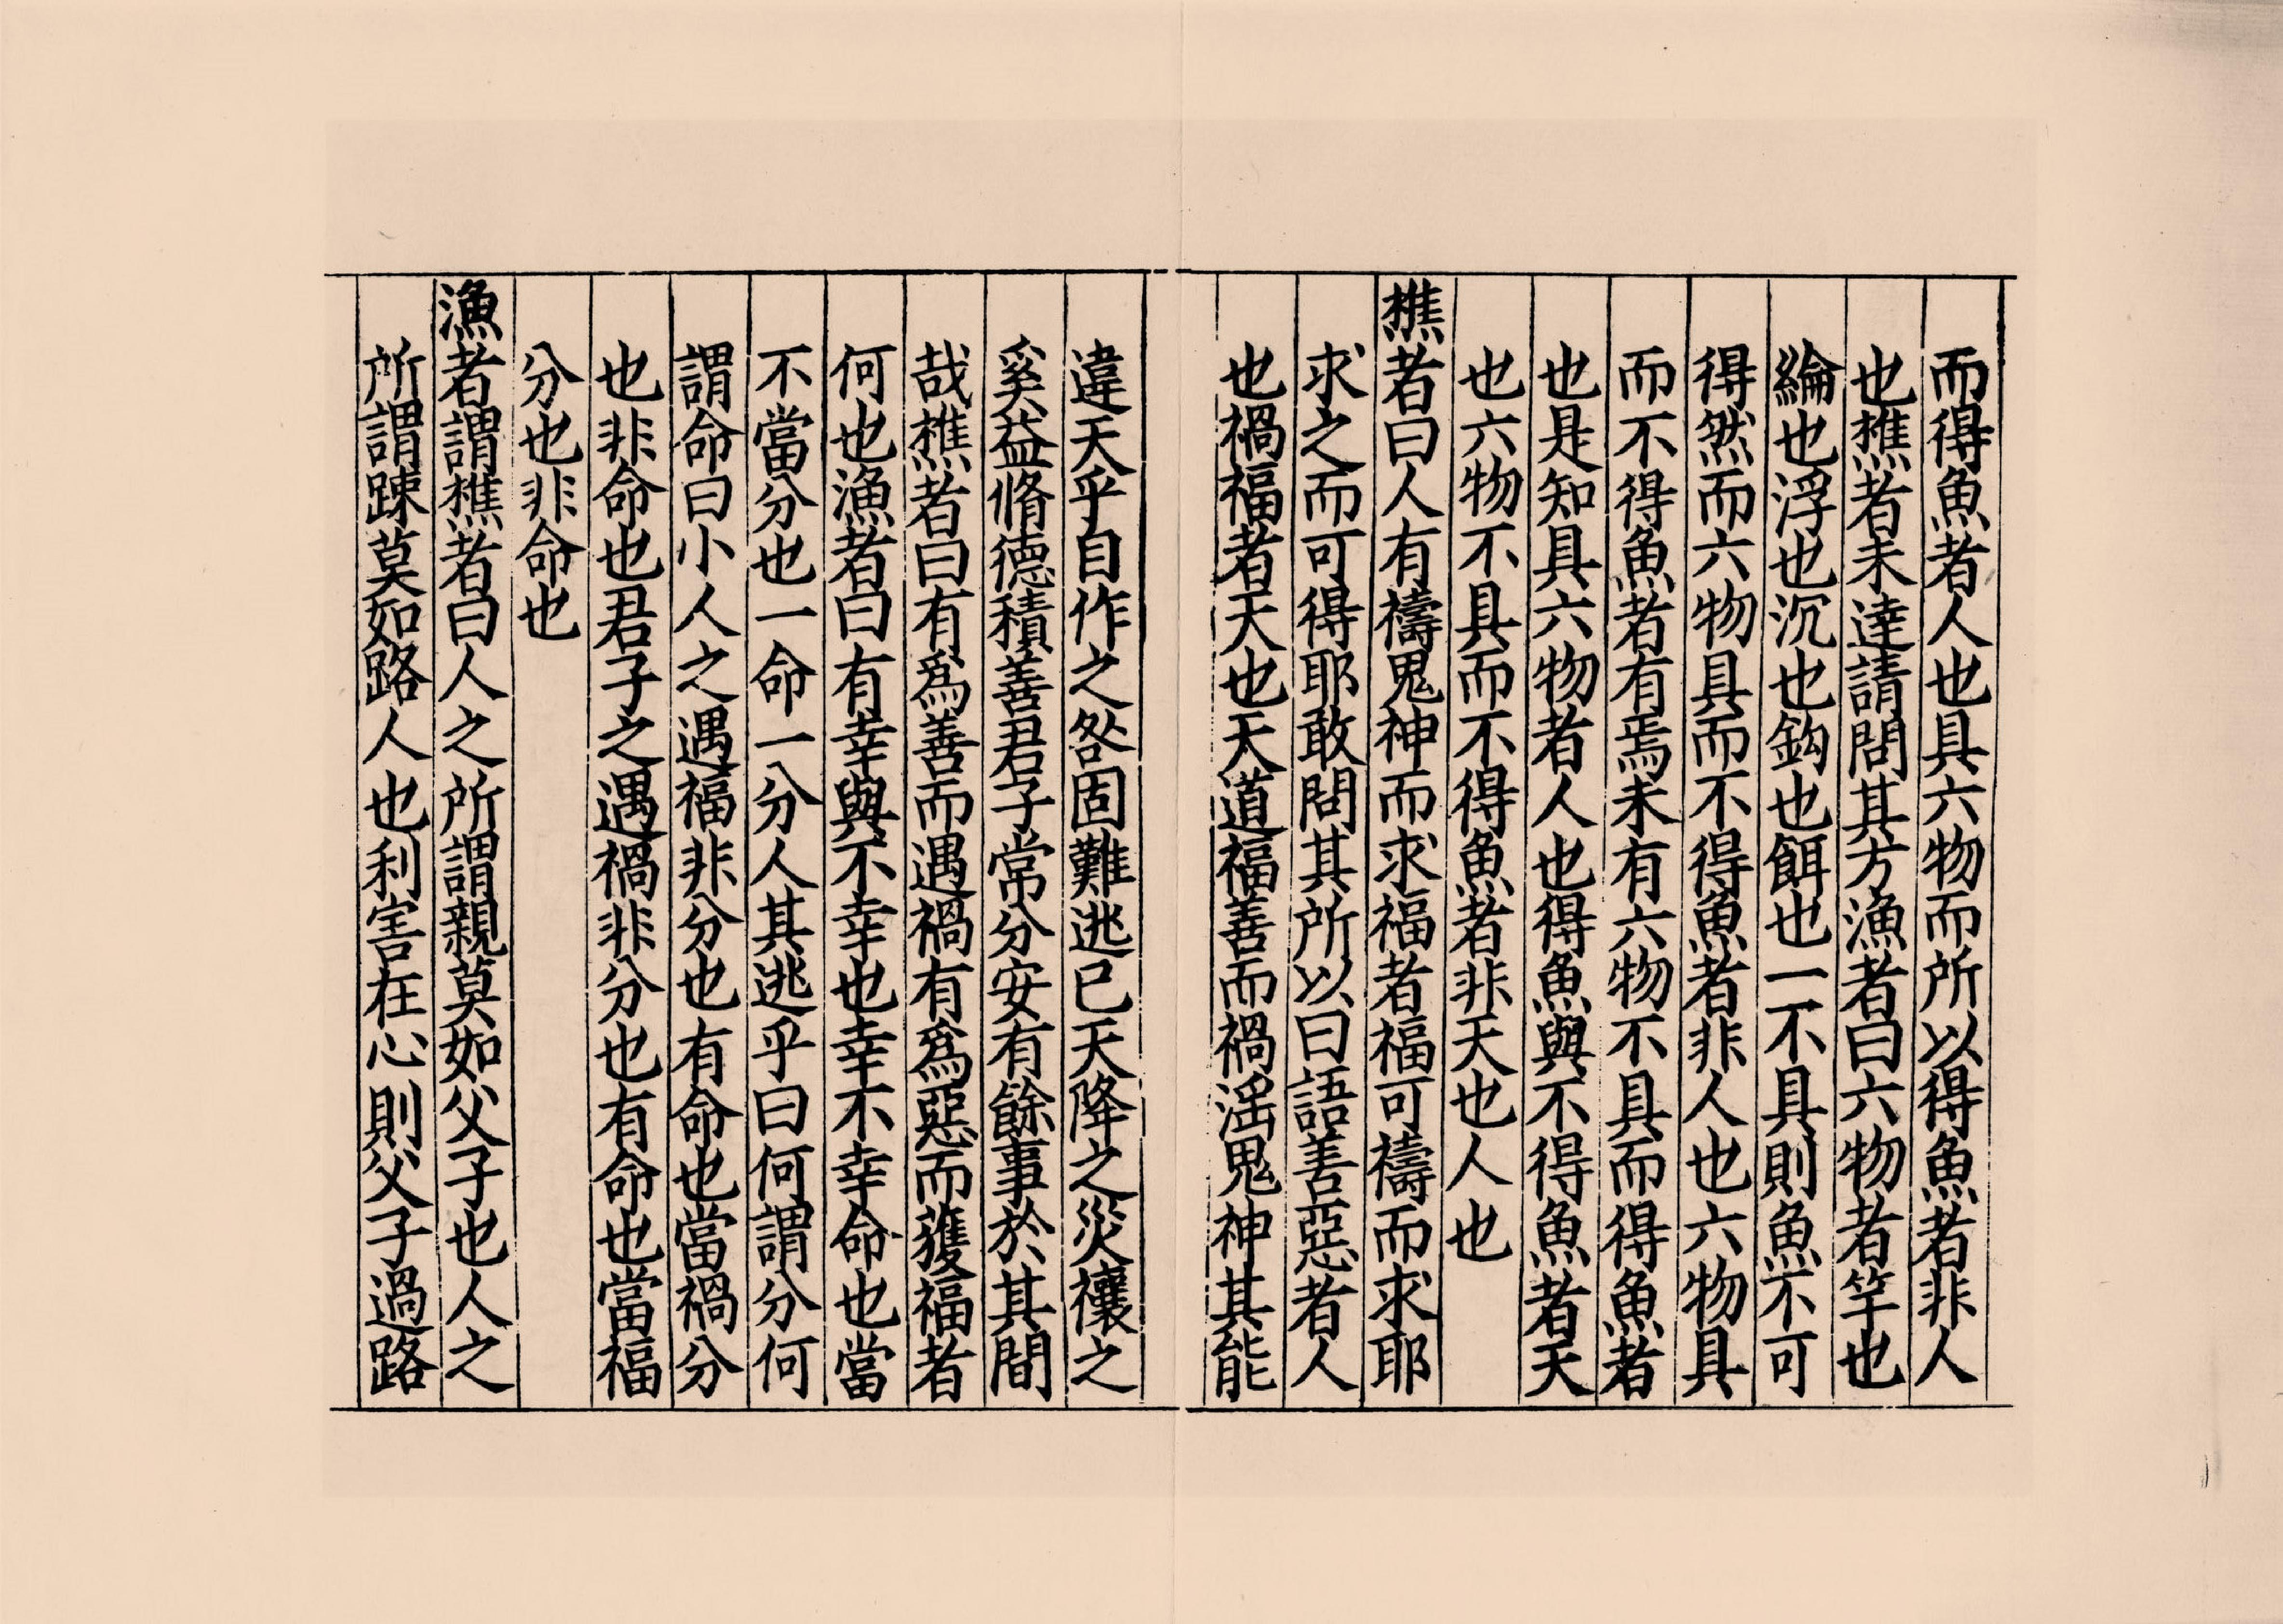 而得魚者人也具六物而所以得魚者非人
也樵者未達請問其方漁者曰六物者竿也
綸也浮也沉也鈎也餌也一不具則魚不可
得然而六物具而不得魚者非人也六物具
而不得魚者有焉未有六物不具而得魚者
也是知具六物者人也得魚與不得魚者天
也六物不具而不得魚者非天也人也
樵者曰人有禱鬼神而求福者福可禱而求耶
求之而可得耶敢問其所以曰語善惡者人
也禍福者天也天道福善而禍淫鬼神其能
違天乎自作之咎固難逃已天降之災禳之
奚益脩德積善君子常分安有餘事於其間
哉樵者曰有為善而遇禍有為惡而獲福者
何也漁者曰有幸與不幸也幸不幸命也當
不當分也一命一分人其逃乎曰何謂分何
謂命曰小人之遇福非分也有命也當禍分
也非命也君子之遇禍非分也有命也當福
分也非命也
漁者謂樵者曰人之所謂親莫如父子也人之
所謂踈莫如路人也利害在心則父子過路